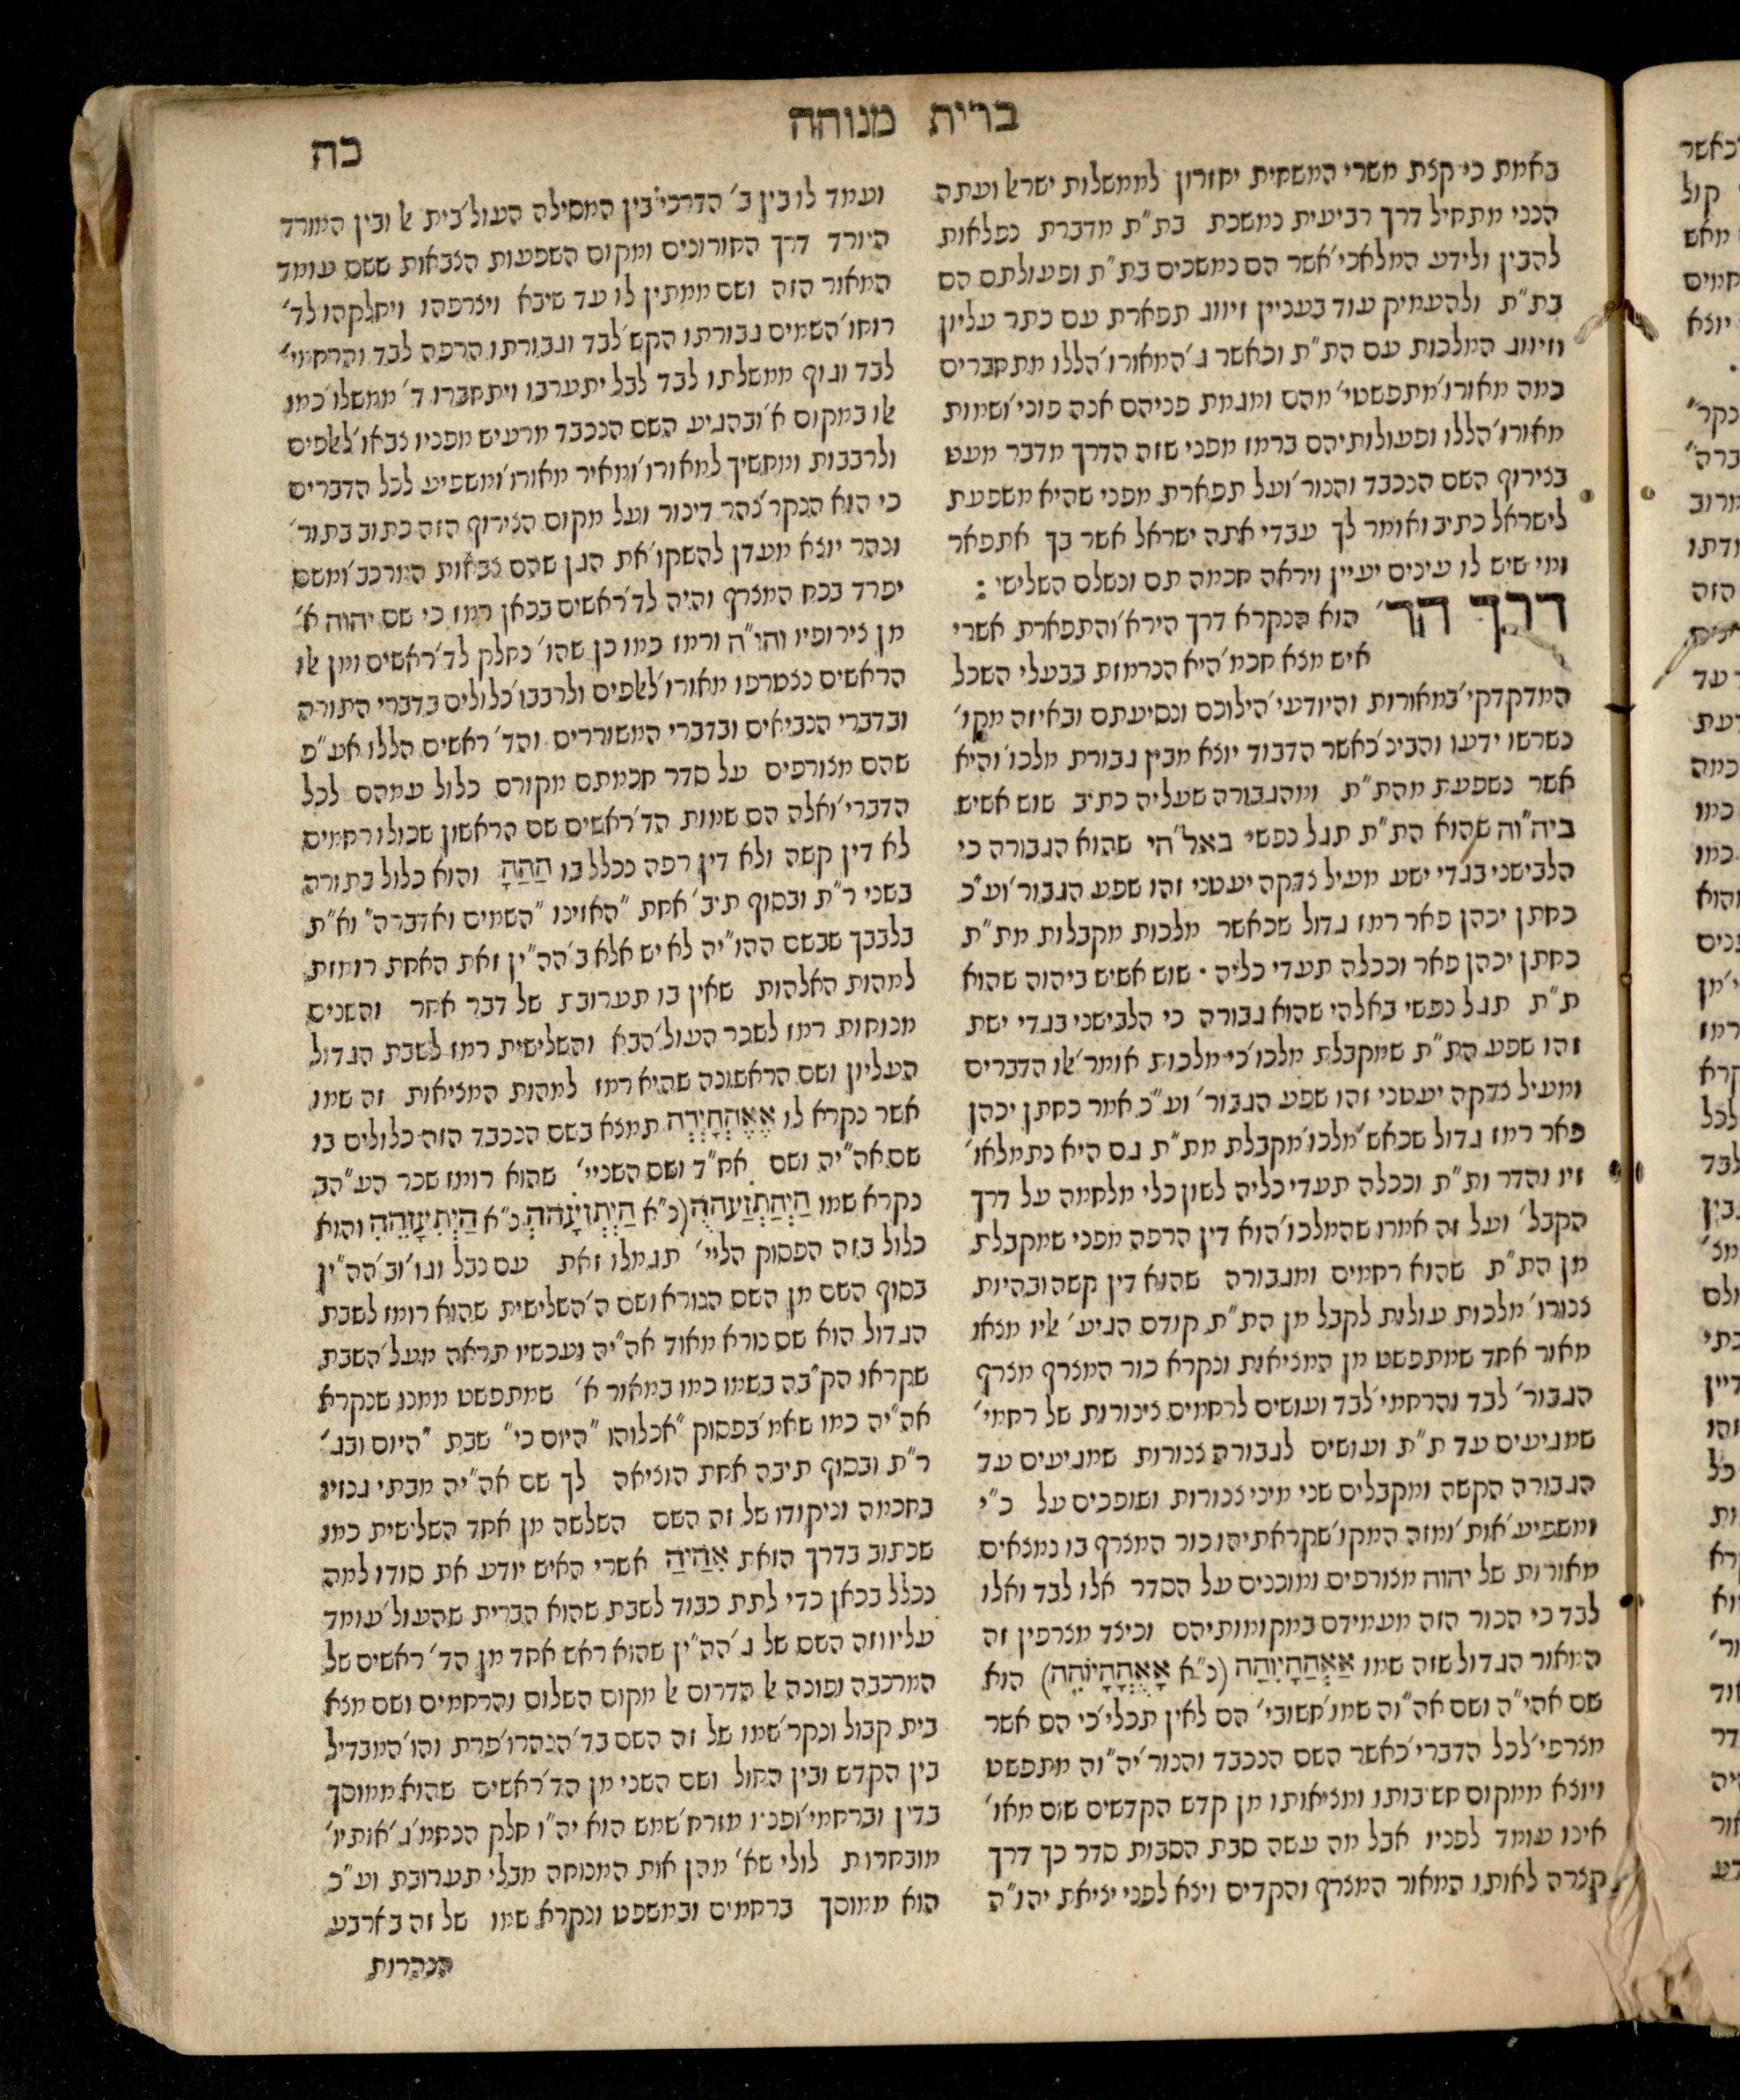 ברית מנוחה
כח
באמת כי קצת משרי המשחית יחזרון לממשלות ישרא' ועתה
הנני מתחיל דרך רביעית נמשכת בת"ת מדברת נפלאות
להבין ולידע המלאכי' אשר הם נמשכים בת"ת ופעולתם הם
בת"ת ולהעמיק עוד בענין זיווג תפארת עם כתר עליון
וזיווג המלכות עם הת"ת וכאשר ג' המאורו' הללו מתחברים
כמה מאורו' מתפשטי' מהם ומגמת פניהם אנה פוני' ושמות
מאורו' הללו ופעולותיהם ברמז מפני שזה הדרך מדבר מעט
בצירוף השם הנכבד והנור' ועל תפארת מפני שהיא משפעת
לישראל כתיב ואומר לך עבדי אתה ישראל אשר בך אתפאר
ומי שיש לו עינים יעיין ויראה חכמה תם ונשלם השלישי :
דרך הד' הוא הנקרא דרך הירא' והתפארת אשרי
איש מצא חכמ' היא הנרמזת בבעלי השכל
המדקדקי' במאורות והיודעי' הילוכם ונסיעתם ובאיזה מקו'
נשרשו ידעו והבינ' כאשר הדבור יוצא מבין גבורת מלכו' והיא
אשר נשפעת מהת"ת ומהגבורה שעליה כתיב שוש אשיש
ביה"וה שהוא הת"ת תגל נפשי באל'הי שהוא הגבורה כי
הלבישני בגדי ישע מעיל צדקה יעטני זהו שפע הגבור' וע"כ
כחתן יכהן פאר רמז גדול שכאשר מלכות מקבלות מת"ת
כחתן יכהן פאר וככלה תעדי כליה . שוש אשיש ביהוה שהוא
ת"ת תגל נפשי באלהי שהוא גבורה כי הלבישני בגדי ישת
זהו שפע הת"ת שמקבלת מלכו' כי מלכות אומר' אלו הדברים
ומעיל צדקה יעטני זהו שפע הגבור' וע"כ אמר כחתן יכהן
פאר רמז גדול שכאש' מלכו' מקבלת מת"ת גם היא נתמלאו'
זיו והדר ות"ת וככלה תעדי כליה לשון כלי מלחמה על דרך
הקבל' ועל זה אמרו שהמלכו' הוא דין הרפה מפני שמקבלת
מן הת"ת שהוא רחמים ומגבורה שהוא דין קשה ובהיות
צנורו' מלכות עולות לקבל מן הת"ת קודם הגיע' אליו מצאו
מאור אחד שמתפשט מן המציאות ונקרא כור המצרף מצרף
הגבור' לבד והרחמי' לבד ועושים לרחמים צינורות של רחמי'
שמגיעים עד ת"ת ועושים לגבורה צנורות שמגיעים עד
הגבורה הקשה ומקבלים שני מיני צנורות ושופכים על כ"י
ומשפיע' אות' ומזה המקו' שקראתיהו כור המצרף בו נמצאים
מאורות של יהוה מצורפים ומוכנים על הסדר אלו לבד ואלו
לבד כי הכור הזה מעמידם במקומותיהם וכיצד מצרפין זה
המאור הגדול שזה שמו אַאְהַהָיִוֹהַה (נ"א אָאֱהְהָהָיוֹהֵה) הוא
שם אהי"ה ושם אה"וה שמו' חשובי' הם לאין תכלי' כי הם אשר
מצרפי' לכל הדברי' כאשר השם הנכבד והנור' יה"וה מתפשט
ויוצא ממקום חשיבותו ומציאותו מן קדש הקדשים שום מאו'
אינו עומד לפניו אבל מה עשה סבת הסבות סדר כך דרך
קצרה לאותו המאור המצרף והקדים ויצא לפני יציאת יהו"ה
ועמד לו בין ב' הדרכי' בין המסילה העול' בית אל ובין המורד
היורד דרך החורונים ומקום השפעות הצבאות ששם עומד
המאור הזה ושם ממתין לו עד שיבא ויצרפהו ויחלקהו לד'
רוחו' השמים גבורתו הקש' לבד וגבורתו הרפה לבד והרחמי'
לבד וגוף ממשלתו לבד לבל יתערבו ויתחברו ד' ממשלו' כמו
אלו במקום א' ובהגיע השם הנכבד מרעיש מפניו צבאו' לאלפים
ולרבבות ומחשיך למאורו' ומאיר מאורו' ומשפיע לכל הדברים
כי הוא הנקר' צהר דינור ועל מקום הצירוף הזה כתוב בתור'
ונהר יוצא מעדן להשקו' את הגן שהם צבאות המרכב' ומשם
יפרד בכח המצרף והיה לד' ראשים בכאן רמז כי שם יהוה א'
מן צירופיו והי"ה ורמז כמו כן שהו' נחלק לד' ראשים ומן אלו
הראשים נצטרפו מאורו' לאלפים ולרבבו' כלולים בדברי התורה
ובדברי הנביאים ובדברי המשוררים והד' ראשים הללו אע"פ
שהם מצורפים על סדר חכמתם מקורם כלול עמהם לכל
הדברי' ואלה הם שמות הד' ראשים שם הראשון שכולו רחמים
לא דין קשה ולא דין רפה נכלל בו הַהַהָ והוא כלול בתורה
בשני ר"ת ובסוף תיב' אחת "האזינו "השמים ואדברה" וא"ת
בלבבך שבשם ההו"יה לא יש אלא ב' הה"ין זאת האחת רומזת
למהות האלהות שאין בו תערובת של דבר אחר והשנים
מנוחות רמז לשכר העול' הבא והשלישית רמז לשבת הגדול
העליון ושם הראשונה שהיא רמז למהות המציאות זה שמו
אשר נקרא לו אֶאֶהְחָיְדְה תמצא בשם הנכבד הזה כלולים בו
שם אה"יה ושם אח"ד ושם השניי' שהוא רומז שכר הע"הב
נקרא שמו הַיְהַתְזַעהֹהֶ (נ"א הַיְתְזיָעָהֹהְ נ"א הַיְתִיעָזֵהֵה) והוא
כלול בזה הפסוק הליי' תגמלו זאת עם נבל וגו' וב' הה"ין
בסוף השם מן השם הנורא ושם ה' השלישית שהוא רומז לשבת
הגדול הוא שם נורא מאוד אה"יה ועכשיו תראה מעל' השבת
שקראו הק"בה בשמו כמו במאור א' שמתפשט ממנו שנקרא
אה"יה כמו שאמ' בפסוק "אכלוהו "היום כי" שבת "היום ובג'
ר"ת ובסוף תיבה אחת הוציאה לך שם אה"יה מבתי גנזיו
בחכמה וניקודו של זה השם השלשה מן אחד השלישית כמו
שכתוב בדרך הזאת אִהַיהַ אשרי האיש יודע את סודו למה
נכלל בכאן כדי לתת כבוד לשבת שהוא הברית שהעול' עומד
עליו וזה השם של ג' הה"ין שהוא ראש אחד מן הד' ראשים של
המרכבה ופונה אל הדרום אל מקום השלום והרחמים ושם מצא
בית קבול ונקר' שמו של זה השם בד' הנהרו' פרת והו' המבדיל
בין הקדש ובין החול ושם השני מן הד' ראשים שהוא ממוסך
בדין וברחמי' ופניו מזרח' שמש הוא יה"ו חלק הנחמ' ג' אותיו'
מובחרות לולי שא' מהן אות המנוחה מבלי תערובת וע"כ
הוא ממוסך ברחמים ובמשפט ונקרא שמו של זה בארבע
הנהרות